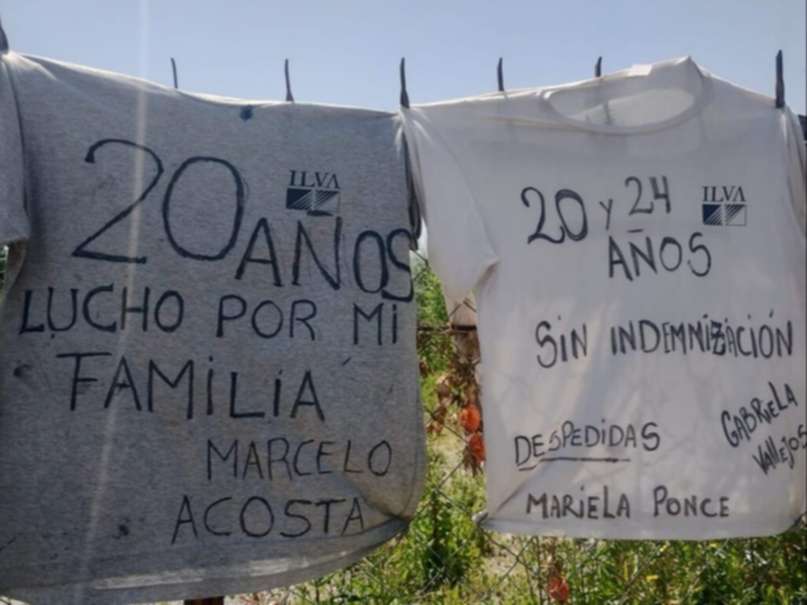 ILVA
20 AÑOS
LUCHO POR MI
FAMILIA
MARCELO
ACOSTA
ILVA
20 Y 24
AÑOS
SIN INDEMNIZACIÓN
DESPEDIDAS
MARIELA PONCE
GABRIELA
VALLEJOS